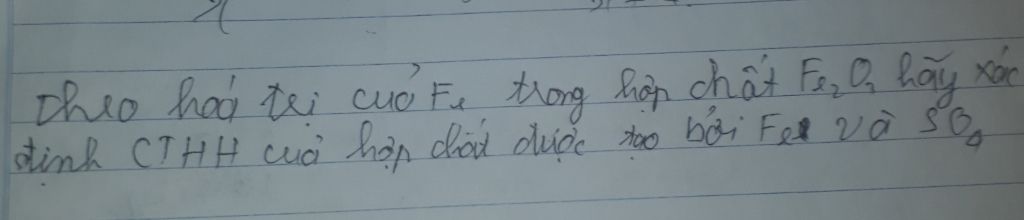 Theo hoá trị cuả Fe trong hợp chất Fe₂O₃ hãy xác
định CTHH cuả hợp chất được tạo bởi Fe và SO₄